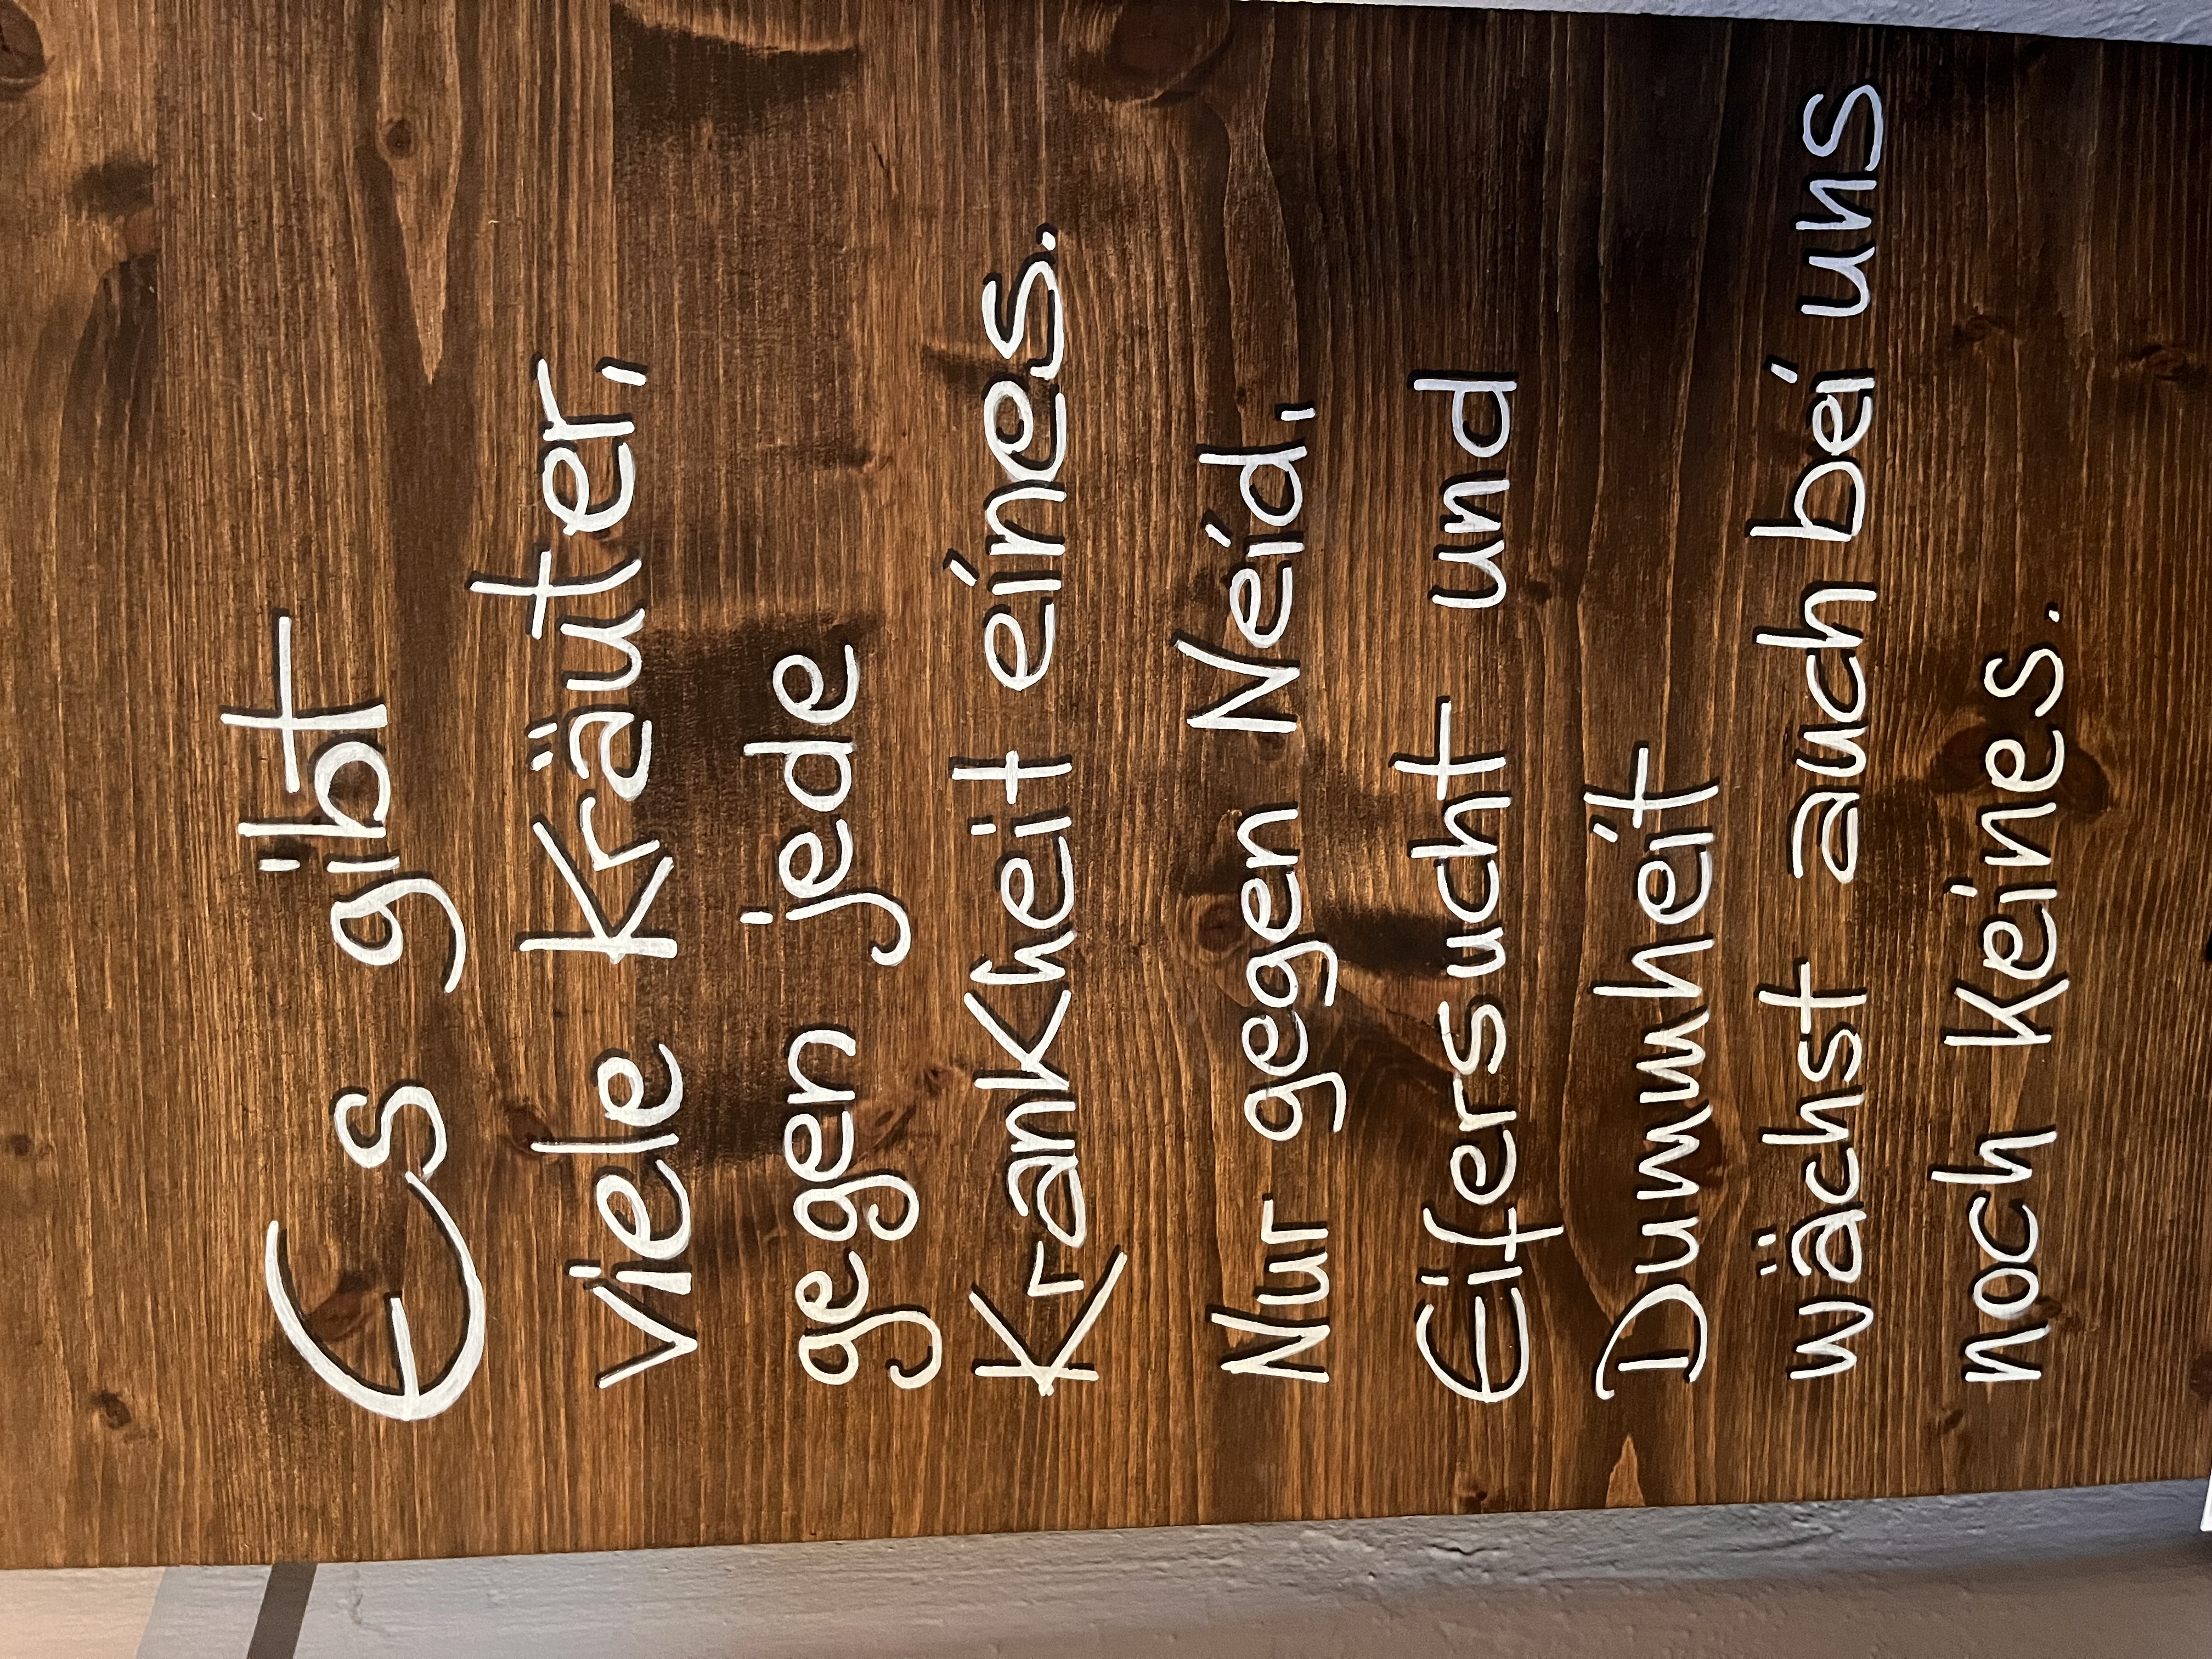 Es gibt
viele Kräuter,
gegen jede
Krankheit eines.
Nur gegen Neid,
Eifersucht und
Dummheit
wächst auch bei uns
noch keines.